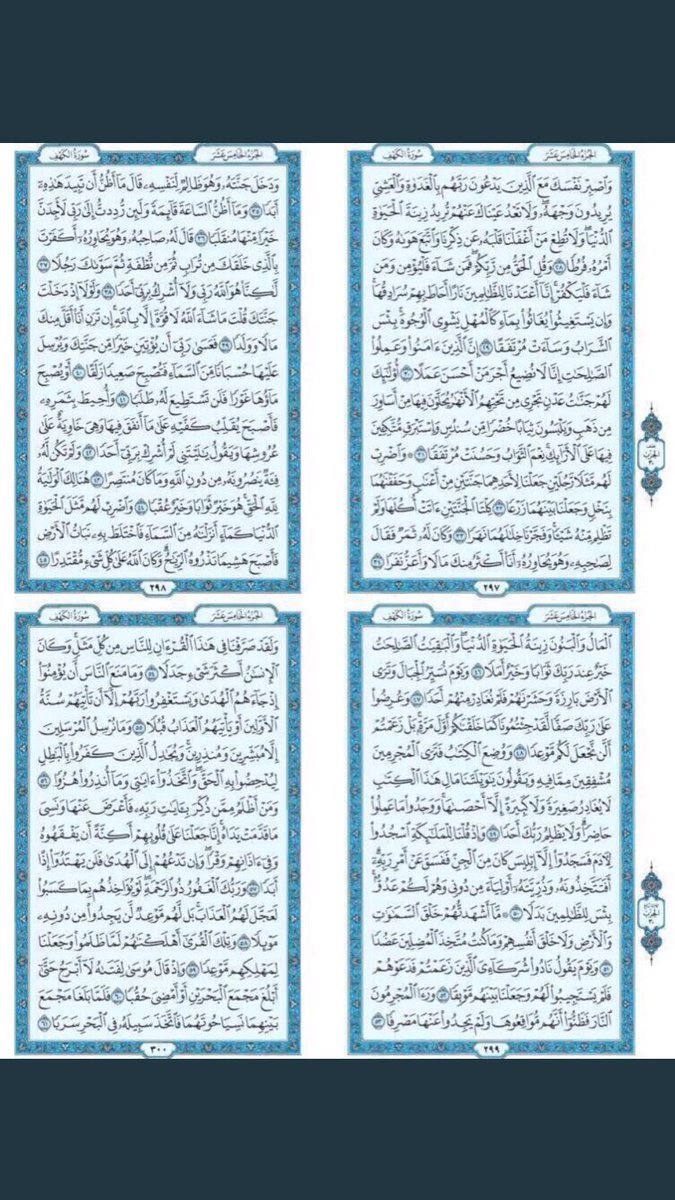 الجزء الخامس عشر
سورة الكهف
وَٱصۡبِرۡ نَفۡسَكَ مَعَ ٱلَّذِينَ يَدۡعُونَ رَبَّهُم بِٱلۡغَدَوٰةِ وَٱلۡعَشِيِّ
يُرِيدُونَ وَجۡهَهُۥۖ وَلَا تَعۡدُ عَيۡنَاكَ عَنۡهُمۡ تُرِيدُ زِينَةَ ٱلۡحَيَوٰةِ
ٱلدُّنۡيَاۖ وَلَا تُطِعۡ مَنۡ أَغۡفَلۡنَا قَلۡبَهُۥ عَن ذِكۡرِنَا وَٱتَّبَعَ هَوَىٰهُ وَكَانَ
أَمۡرُهُۥ فُرُطٗا ٢٨ وَقُلِ ٱلۡحَقُّ مِن رَّبِّكُمۡۖ فَمَن شَآءَ فَلۡيُؤۡمِن وَمَن
شَآءَ فَلۡيَكۡفُرۡۚ إِنَّآ أَعۡتَدۡنَا لِلظَّٰلِمِينَ نَارًا أَحَاطَ بِهِمۡ سُرَادِقُهَاۚ
وَإِن يَسۡتَغِيثُواْ يُغَاثُواْ بِمَآءٖ كَٱلۡمُهۡلِ يَشۡوِي ٱلۡوُجُوهَۚ بِئۡسَ
ٱلشَّرَابُ وَسَآءَتۡ مُرۡتَفَقًا ٢٩ إِنَّ ٱلَّذِينَ ءَامَنُواْ وَعَمِلُواْ
ٱلصَّٰلِحَٰتِ إِنَّا لَا نُضِيعُ أَجۡرَ مَنۡ أَحۡسَنَ عَمَلًا ٣٠ أُوْلَٰٓئِكَ
لَهُمۡ جَنَّٰتُ عَدۡنٖ تَجۡرِي مِن تَحۡتِهِمُ ٱلۡأَنۡهَٰرُ يُحَلَّوۡنَ فِيهَا مِنۡ أَسَاوِرَ
مِن ذَهَبٖ وَيَلۡبَسُونَ ثِيَابًا خُضۡرٗا مِّن سُندُسٖ وَإِسۡتَبۡرَقٖ مُّتَّكِـِٔينَ
فِيهَا عَلَى ٱلۡأَرَآئِكِۚ نِعۡمَ ٱلثَّوَابُ وَحَسُنَتۡ مُرۡتَفَقٗا ٣١ ۞ وَٱضۡرِبۡ
لَهُم مَّثَلٗا رَّجُلَيۡنِ جَعَلۡنَا لِأَحَدِهِمَا جَنَّتَيۡنِ مِنۡ أَعۡنَٰبٖ وَحَفَفۡنَٰهُمَا
بِنَخۡلٖ وَجَعَلۡنَا بَيۡنَهُمَا زَرۡعٗا ٣٢ كِلۡتَا ٱلۡجَنَّتَيۡنِ ءَاتَتۡ أُكُلَهَا وَلَمۡ
تَظۡلِم مِّنۡهُ شَيۡـٔٗاۚ وَفَجَّرۡنَا خِلَٰلَهُمَا نَهَرٗا ٣٣ وَكَانَ لَهُۥ ثَمَرٞ فَقَالَ
لِصَٰحِبِهِۦ وَهُوَ يُحَاوِرُهُۥٓ أَنَا۠ أَكۡثَرُ مِنكَ مَالٗا وَأَعَزُّ نَفَرٗا ٣٤
٢٩٧
الجزء الخامس عشر
سورة الكهف
وَدَخَلَ جَنَّتَهُۥ وَهُوَ ظَالِمٞ لِّنَفۡسِهِۦ قَالَ مَآ أَظُنُّ أَن تَبِيدَ هَٰذِهِۦٓ
أَبَدٗا ٣٥ وَمَآ أَظُنُّ ٱلسَّاعَةَ قَآئِمَةٗ وَلَئِن رُّدِدتُّ إِلَىٰ رَبِّي لَأَجِدَنَّ
خَيۡرٗا مِّنۡهَا مُنقَلَبٗا ٣٦ قَالَ لَهُۥ صَاحِبُهُۥ وَهُوَ يُحَاوِرُهُۥٓ أَكَفَرۡتَ
بِٱلَّذِي خَلَقَكَ مِن تُرَابٖ ثُمَّ مِن نُّطۡفَةٖ ثُمَّ سَوَّىٰكَ رَجُلٗا ٣٧
لَّٰكِنَّا۠ هُوَ ٱللَّهُ رَبِّي وَلَآ أُشۡرِكُ بِرَبِّيٓ أَحَدٗا ٣٨ وَلَوۡلَآ إِذۡ دَخَلۡتَ
جَنَّتَكَ قُلۡتَ مَا شَآءَ ٱللَّهُ لَا قُوَّةَ إِلَّا بِٱللَّهِۚ إِن تَرَنِ أَنَا۠ أَقَلَّ مِنكَ
مَالٗا وَوَلَدٗا ٣٩ فَعَسَىٰ رَبِّيٓ أَن يُؤۡتِيَنِ خَيۡرٗا مِّن جَنَّتِكَ وَيُرۡسِلَ
عَلَيۡهَا حُسۡبَانٗا مِّنَ ٱلسَّمَآءِ فَتُصۡبِحَ صَعِيدٗا زَلَقًا ٤٠ أَوۡ يُصۡبِحَ
مَآؤُهَا غَوۡرٗا فَلَن تَسۡتَطِيعَ لَهُۥ طَلَبٗا ٤١ وَأُحِيطَ بِثَمَرِهِۦ
فَأَصۡبَحَ يُقَلِّبُ كَفَّيۡهِ عَلَىٰ مَآ أَنفَقَ فِيهَا وَهِيَ خَاوِيَةٌ عَلَىٰ
عُرُوشِهَا وَيَقُولُ يَٰلَيۡتَنِي لَمۡ أُشۡرِكۡ بِرَبِّيٓ أَحَدٗا ٤٢ وَلَمۡ تَكُن لَّهُۥ
فِئَةٞ يَنصُرُونَهُۥ مِن دُونِ ٱللَّهِ وَمَا كَانَ مُنتَصِرًا ٤٣ هُنَالِكَ ٱلۡوَلَٰيَةُ
لِلَّهِ ٱلۡحَقِّۚ هُوَ خَيۡرٞ ثَوَابٗا وَخَيۡرٌ عُقۡبٗا ٤٤ وَٱضۡرِبۡ لَهُم مَّثَلَ ٱلۡحَيَوٰةِ
ٱلدُّنۡيَا كَمَآءٍ أَنزَلۡنَٰهُ مِنَ ٱلسَّمَآءِ فَٱخۡتَلَطَ بِهِۦ نَبَاتُ ٱلۡأَرۡضِ
فَأَصۡبَحَ هَشِيمٗا تَذۡرُوهُ ٱلرِّيَٰحُۗ وَكَانَ ٱللَّهُ عَلَىٰ كُلِّ شَيۡءٖ مُّقۡتَدِرًا ٤٥
٢٩٨
الجزء الخامس عشر
سورة الكهف
ٱلۡمَالُ وَٱلۡبَنُونَ زِينَةُ ٱلۡحَيَوٰةِ ٱلدُّنۡيَاۖ وَٱلۡبَٰقِيَٰتُ ٱلصَّٰلِحَٰتُ
خَيۡرٌ عِندَ رَبِّكَ ثَوَابٗا وَخَيۡرٌ أَمَلٗا ٤٦ وَيَوۡمَ نُسَيِّرُ ٱلۡجِبَالَ وَتَرَى
ٱلۡأَرۡضَ بَارِزَةٗ وَحَشَرۡنَٰهُمۡ فَلَمۡ نُغَادِرۡ مِنۡهُمۡ أَحَدٗا ٤٧ وَعُرِضُواْ
عَلَىٰ رَبِّكَ صَفّٗا لَّقَدۡ جِئۡتُمُونَا كَمَا خَلَقۡنَٰكُمۡ أَوَّلَ مَرَّةِۭۚ بَلۡ زَعَمۡتُمۡ
أَلَّن نَّجۡعَلَ لَكُم مَّوۡعِدٗا ٤٨ وَوُضِعَ ٱلۡكِتَٰبُ فَتَرَى ٱلۡمُجۡرِمِينَ
مُشۡفِقِينَ مِمَّا فِيهِ وَيَقُولُونَ يَٰوَيۡلَتَنَا مَالِ هَٰذَا ٱلۡكِتَٰبِ
لَا يُغَادِرُ صَغِيرَةٗ وَلَا كَبِيرَةً إِلَّآ أَحۡصَىٰهَاۚ وَوَجَدُواْ مَا عَمِلُواْ
حَاضِرٗاۗ وَلَا يَظۡلِمُ رَبُّكَ أَحَدٗا ٤٩ وَإِذۡ قُلۡنَا لِلۡمَلَٰٓئِكَةِ ٱسۡجُدُواْ
لِأٓدَمَ فَسَجَدُوٓاْ إِلَّآ إِبۡلِيسَ كَانَ مِنَ ٱلۡجِنِّ فَفَسَقَ عَنۡ أَمۡرِ رَبِّهِۦٓۗ
أَفَتَتَّخِذُونَهُۥ وَذُرِّيَّتَهُۥٓ أَوۡلِيَآءَ مِن دُونِي وَهُمۡ لَكُمۡ عَدُوُّۢۚ
بِئۡسَ لِلظَّٰلِمِينَ بَدَلٗا ٥٠ ۞ مَّآ أَشۡهَدتُّهُمۡ خَلۡقَ ٱلسَّمَٰوَٰتِ
وَٱلۡأَرۡضِ وَلَا خَلۡقَ أَنفُسِهِمۡ وَمَا كُنتُ مُتَّخِذَ ٱلۡمُضِلِّينَ عَضُدٗا
٥١ وَيَوۡمَ يَقُولُ نَادُواْ شُرَكَآءِيَ ٱلَّذِينَ زَعَمۡتُمۡ فَدَعَوۡهُمۡ
فَلَمۡ يَسۡتَجِيبُواْ لَهُمۡ وَجَعَلۡنَا بَيۡنَهُم مَّوۡبِقٗا ٥٢ وَرَءَا ٱلۡمُجۡرِمُونَ
ٱلنَّارَ فَظَنُّوٓاْ أَنَّهُم مُّوَاقِعُوهَا وَلَمۡ يَجِدُواْ عَنۡهَا مَصۡرِفٗا ٥٣
٢٩٩
الجزء الخامس عشر
سورة الكهف
وَلَقَدۡ صَرَّفۡنَا فِي هَٰذَا ٱلۡقُرۡءَانِ لِلنَّاسِ مِن كُلِّ مَثَلٖۚ وَكَانَ
ٱلۡإِنسَٰنُ أَكۡثَرَ شَيۡءٖ جَدَلٗا ٥٤ وَمَا مَنَعَ ٱلنَّاسَ أَن يُؤۡمِنُوٓاْ
إِذۡ جَآءَهُمُ ٱلۡهُدَىٰ وَيَسۡتَغۡفِرُواْ رَبَّهُمۡ إِلَّآ أَن تَأۡتِيَهُمۡ سُنَّةُ
ٱلۡأَوَّلِينَ أَوۡ يَأۡتِيَهُمُ ٱلۡعَذَابُ قُبُلٗا ٥٥ وَمَا نُرۡسِلُ ٱلۡمُرۡسَلِينَ
إِلَّا مُبَشِّرِينَ وَمُنذِرِينَۚ وَيُجَٰدِلُ ٱلَّذِينَ كَفَرُواْ بِٱلۡبَٰطِلِ
لِيُدۡحِضُواْ بِهِ ٱلۡحَقَّۖ وَٱتَّخَذُوٓاْ ءَايَٰتِي وَمَآ أُنذِرُواْ هُزُوٗا ٥٦
وَمَنۡ أَظۡلَمُ مِمَّن ذُكِّرَ بِـَٔايَٰتِ رَبِّهِۦ فَأَعۡرَضَ عَنۡهَا وَنَسِيَ
مَا قَدَّمَتۡ يَدَاهُۚ إِنَّا جَعَلۡنَا عَلَىٰ قُلُوبِهِمۡ أَكِنَّةً أَن يَفۡقَهُوهُ
وَفِيٓ ءَاذَانِهِمۡ وَقۡرٗاۖ وَإِن تَدۡعُهُمۡ إِلَى ٱلۡهُدَىٰ فَلَن يَهۡتَدُوٓاْ إِذًا
أَبَدٗا ٥٧ وَرَبُّكَ ٱلۡغَفُورُ ذُو ٱلرَّحۡمَةِۖ لَوۡ يُؤَاخِذُهُم بِمَا كَسَبُواْ
لَعَجَّلَ لَهُمُ ٱلۡعَذَابَۚ بَل لَّهُم مَّوۡعِدٞ لَّن يَجِدُواْ مِن دُونِهِۦ
مَوۡئِلٗا ٥٨ وَتِلۡكَ ٱلۡقُرَىٰٓ أَهۡلَكۡنَٰهُمۡ لَمَّا ظَلَمُواْ وَجَعَلۡنَا
لِمَهۡلِكِهِم مَّوۡعِدٗا ٥٩ وَإِذۡ قَالَ مُوسَىٰ لِفَتَىٰهُ لَآ أَبۡرَحُ حَتَّىٰٓ
أَبۡلُغَ مَجۡمَعَ ٱلۡبَحۡرَيۡنِ أَوۡ أَمۡضِيَ حُقُبٗا ٦٠ فَلَمَّا بَلَغَا مَجۡمَعَ
بَيۡنِهِمَا نَسِيَا حُوتَهُمَا فَٱتَّخَذَ سَبِيلَهُۥ فِي ٱلۡبَحۡرِ سَرَبٗا ٦١
٣٠٠